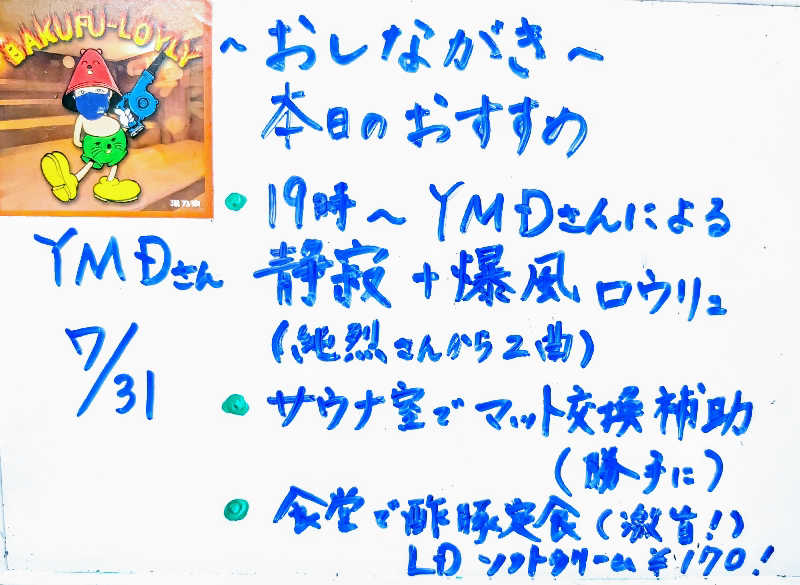 BAKUFU-LOYLY
～おしながき～
本日のおすすめ
19時～YMĐさんによる
静寂＋爆風ロウリュ
(純烈さんから2曲)
サウナ室でマット交換補助
(勝手に)
食堂で酢豚定食(激旨!)
LĐ ソフトクリーム ¥170!
YMĐさん
7/31